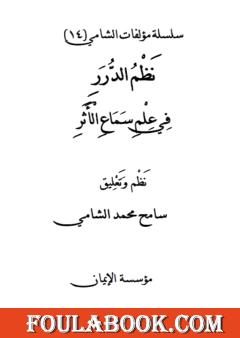 سلسلة مؤلفات الشامي (١٤)
نَظْمُ الدُّرَرِ
فِي عِلْمِ سَمَاعِ الْأَثَرِ
نَظْم وَتَعْلِيق
سامح محمد الشامي
مؤسسة الإيمان
FOULABOOK.COM